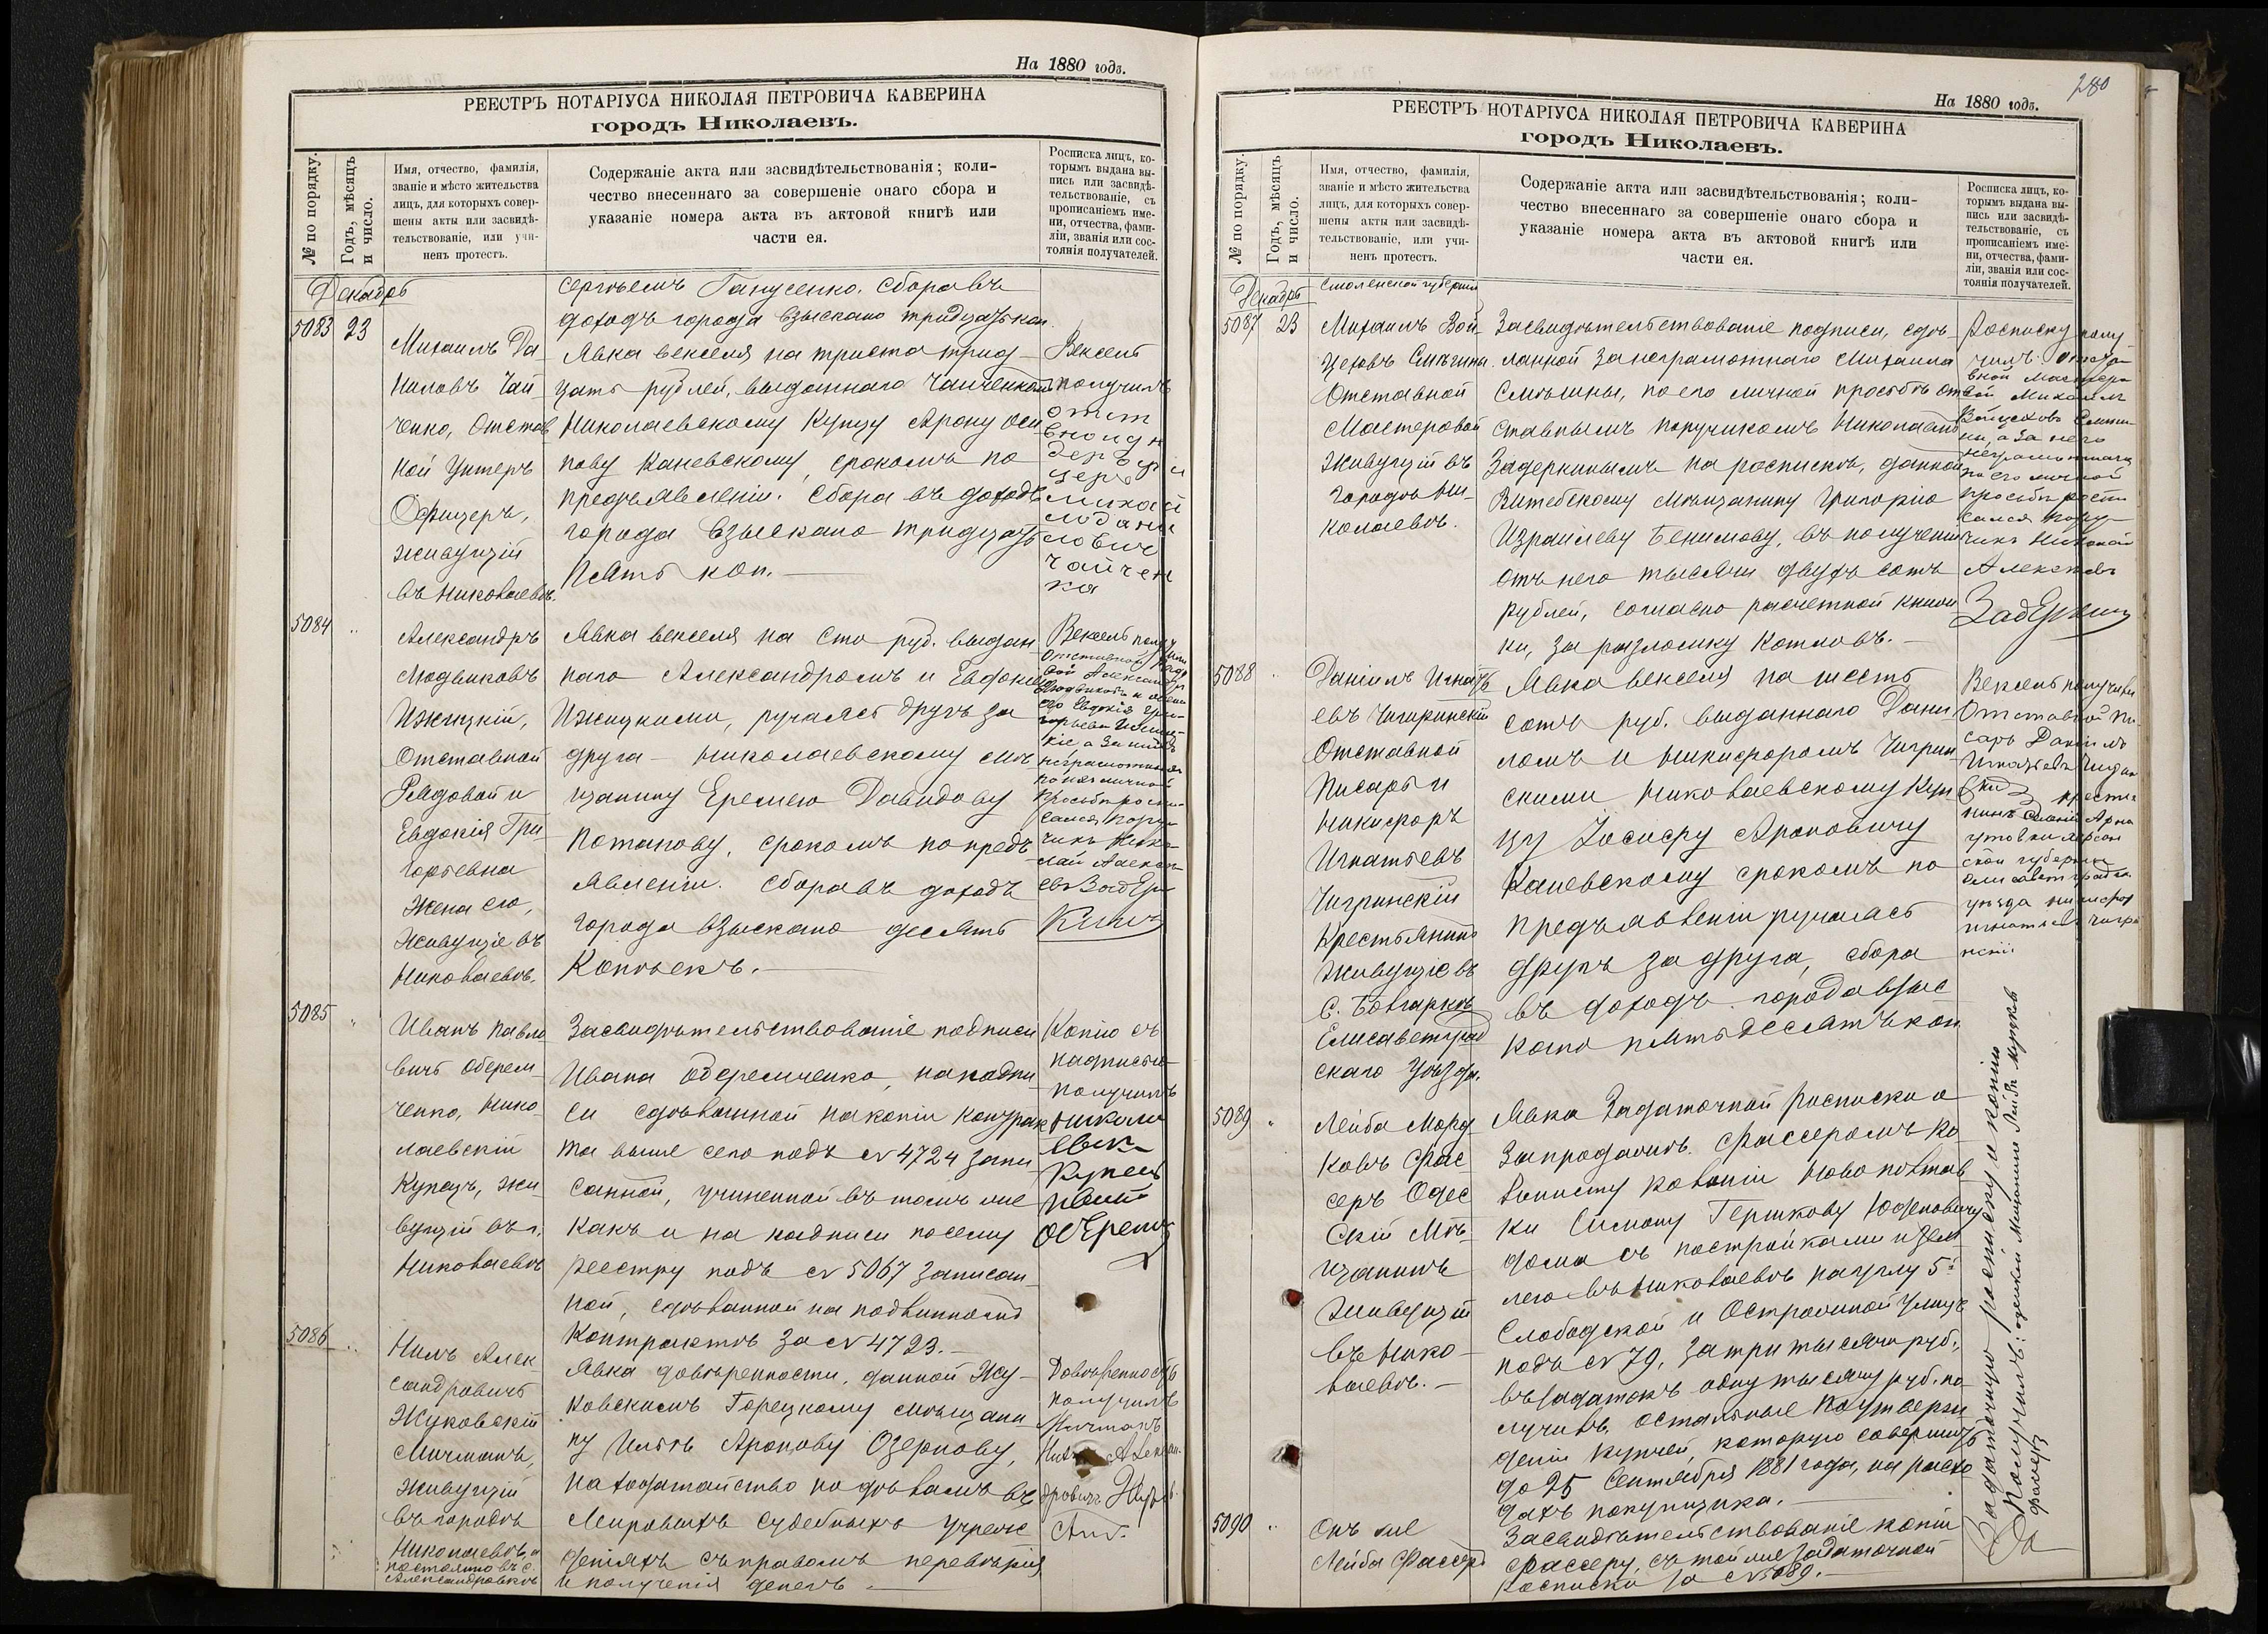 На 1880 годъ.
РЕЕСТРЪ НОТАРІУСА НИКОЛАЯ ПЕТРОВИЧА КАВЕРИНА
городъ Николаевъ.
№ по порядку.
Годъ, мѣсяцъ
и число.
Имя, отчество, фамилія,
званіе и мѣсто жительства
лицъ, для которыхъ совер-
шены акты или засвидѣ-
тельствованіе, или учи-
ненъ протестъ.
Содержаніе акта или засвидѣтельствованія; коли-
чество внесеннаго за совершеніе онаго сбора и
указаніе номера акта въ актовой книгѣ или
части ея.
Росписка лицъ, ко-
торымъ выдана вы-
пись или засвидѣ-
тельствованіе, съ
прописаніемъ име-
ни, отчества, фами-
ліи, званія или сос-
тоянія получателей.
Декабрь
Сергѣемъ Ганусенко. Сбора въ
доходъ города взыскано тридцать коп.
5083 23
Михаилъ Да
ниловъ Чай
ченко, Отстав
ной Унтеръ
Офицеръ,
живущій
въ Николаевѣ.
Явка векселя на триста трид
цать рублей, выданнаго Чайченкомъ
Николаевскому Купцу Арону Оси
пову Каневскому, срокомъ по
предъявленіи. Сбора въ доходъ
города взыскано тридцать
пять коп.
Вексель
получилъ
отст
вной ун
деръ офи
церъ
михаи
ло дани
лович
чайчен
ка
5084 "
Александръ
Людвиковъ
Ижицкій,
Отставной
Рядовой и
Евдокія Гри
горьевна
Жена его,
Живущіе въ
Николаевѣ.
Явка векселя на сто руб. выдан
наго Александромъ и Евдокіею
Ижицкими, ручаясь другъ за
друга - Николаевскому мѣ
щанину Еремею Давидову
Потапову, срокомъ по предъ
явленіи. Сбора въ доходъ
города взыскано десять
Копѣекъ.
Вексель получили
Отставной рядо
вой Александръ
Людвиковъ и жена
его Евдокія Гри-
горьева Ижиц-
кіе, а за нихъ
неграмотныхъ
по ихъ личной
просьбѣ роспи-
сался Пору-
чикъ Нико-
лай Алексѣ
евъ ЗадЕр
Кинъ
5085 "
Иванъ Павло
вичъ Оберем
ченко, Нико-
лаевскій
Купецъ, жи
вущій въ г.
Николаевѣ
Засвидѣтельствованіе подписи
Ивана Оберемченко, на надпи
си сдѣланной на копіи контрак
та выше сего подъ № 4724 запи
санной, учиненной въ томъ же
какъ и на надписи по сему
реестру подъ № 5067 записан
ной, сдѣланной на подлинномъ
Контрактѣ за № 4723.
Копію съ
надписью
получилъ
никола
евск
Купецъ
Иванъ
ОбЕремч
5086 "
Нилъ Алек
сандровичъ
Жуковскій
Мичманъ,
живущій
въ городѣ
Николаевѣ, а
постоянно въ с.
Александровкѣ
Явка довѣренности, данной Жу-
ковскимъ Горецкому мѣщани
ну Ильѣ Аронову Озернову,
на ходатайство по дѣламъ въ
Мировыхъ судебныхъ учреж
деніяхъ съ правомъ передовѣрія
и полученія денегъ.
Довѣренность
получилъ
Мичманъ
Нилъ Алексан-
дровичъ Жуков
скій.
280
На 1880 годъ.
РЕЕСТРЪ НОТАРІУСА НИКОЛАЯ ПЕТРОВИЧА КАВЕРИНА
городъ Николаевъ.
№ по порядку.
Годъ, мѣсяцъ
и число.
Имя, отчество, фамилія,
званіе и мѣсто жительства
лицъ, для которыхъ совер-
шены акты или засвидѣ-
тельствованіе, или учи-
ненъ протестъ.
Содержаніе акта или засвидѣтельствованія; коли-
чество внесеннаго за совершеніе онаго сбора и
указаніе номера акта въ актовой книгѣ или
части ея.
Росписка лицъ, ко-
торымъ выдана вы-
пись или засвидѣ-
тельствованіе, съ
прописаніемъ име-
ни, отчества, фами-
ліи, званія или сос-
тоянія получателей.
Декабрь
Смоленской губерніи
5087 23
Михаилъ Вой
цеховъ
Отставной
Мастеровой
Живущій въ
городѣ Ни-
колаевѣ.
Засвидѣтельствованіе подписи, сдѣ
ланной за неграмотнаго Михаила
по его личной просьбѣ от
ставнымъ поручикомъ Николаемъ
Задеркинымъ на роспискѣ, данной
Витебскому Мѣщанину Григорію
Израилеву Бенимову, въ полученіи
отъ него тысячи двухъ сотъ
рублей, согласно расчетной книж
ки, за разломку котловъ.
Росписку полу
чилъ отста-
вной Мастеро
вой Михаилъ
Войцеховъ
а за него
неграмотнаго
по его личной
просьбѣ роспи
сался Пору-
чикъ Николай
Алексѣевъ
ЗадЕркинъ
5088 "
Даніилъ Игнать
евъ Чигиринскій
Отставной
Писарь и
Никифоръ
Игнатьевъ
Чигринскій
Крестьянинъ
Живущіе въ
С. Болгаркѣ
Елисаветград
скаго Уѣзда.
Явка векселя на шесть
сотъ руб. выданнаго Дани
ломъ и Никифоромъ Чигрин
скими Николаевскому Куп
цу Іосифу Ароновичу
Каневскому срокомъ по
предъявленіи ручаясь
другъ за друга, сбора
въ доходъ города взыс
кано пятьдесятъ коп
Вексель получили
Отставной Пи-
сарь Даніилъ
Игнатьевъ Чигрин
скій крестья
нинъ
херсон
ской губерніи
елисаветградска
уѣзда никифор
игнатьевъ чигри
нскій
5089 "
Лейба Морд
ковъ Фас
серъ Одес
скій Мѣ-
щанинъ
Живущій
въ Нико-
лаевѣ.
Явка Задаточной росписки о
запродажѣ Фассеромъ Ко
лонисту колоніи Новополтав
ки Симону Гершкову Юделовичу
дома съ постройками и зем
лею въ Николаевѣ на углу 5й
Слободской и Острожной улицъ
подъ № 79, за три тысячи руб.,
въ задатокъ одну тысячу руб. по
лучивъ, остальные по утверж
деніи купчей, которую совершить
до 25 Сентября 1881 года, на расхо
дахъ покупщика.
5090 "
Онъ же
Лейба Фассеръ
Засвидѣтельствованіе копіи
Фассеру, съ той же задаточной
росписки за № 5089.
Задаточную росписку и копію
Получилъ: Мещанинъ Лейба
Фассеръ